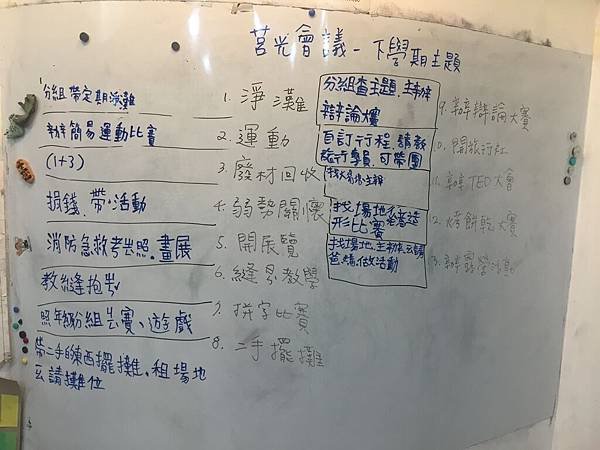 莒光會議-下學期主題
分組帶定期淨灘
辦簡易運動比賽
(1+3)
捐錢、帶活動
消防急救考出照、畫展
教縫抱
照年級分組去賽、遊戲
帶二手的東西擺攤、租場地
去請攤位
1. 淨灘
2. 運動
3. 廢材回收
4. 弱勢關懷
5. 開展覽
6. 縫 教學
7. 拼字比賽
8. 二手擺攤
分組查主題、主辦
辯論大賽
自訂行程、請教
旅行專員、可帶團
找場地
形比賽
找場地、主辦
做活動
9. 辦辯論大賽
10. 開旅行社
11. 辦TED大會
12. 烤餅乾大賽
13. 辦露營活動